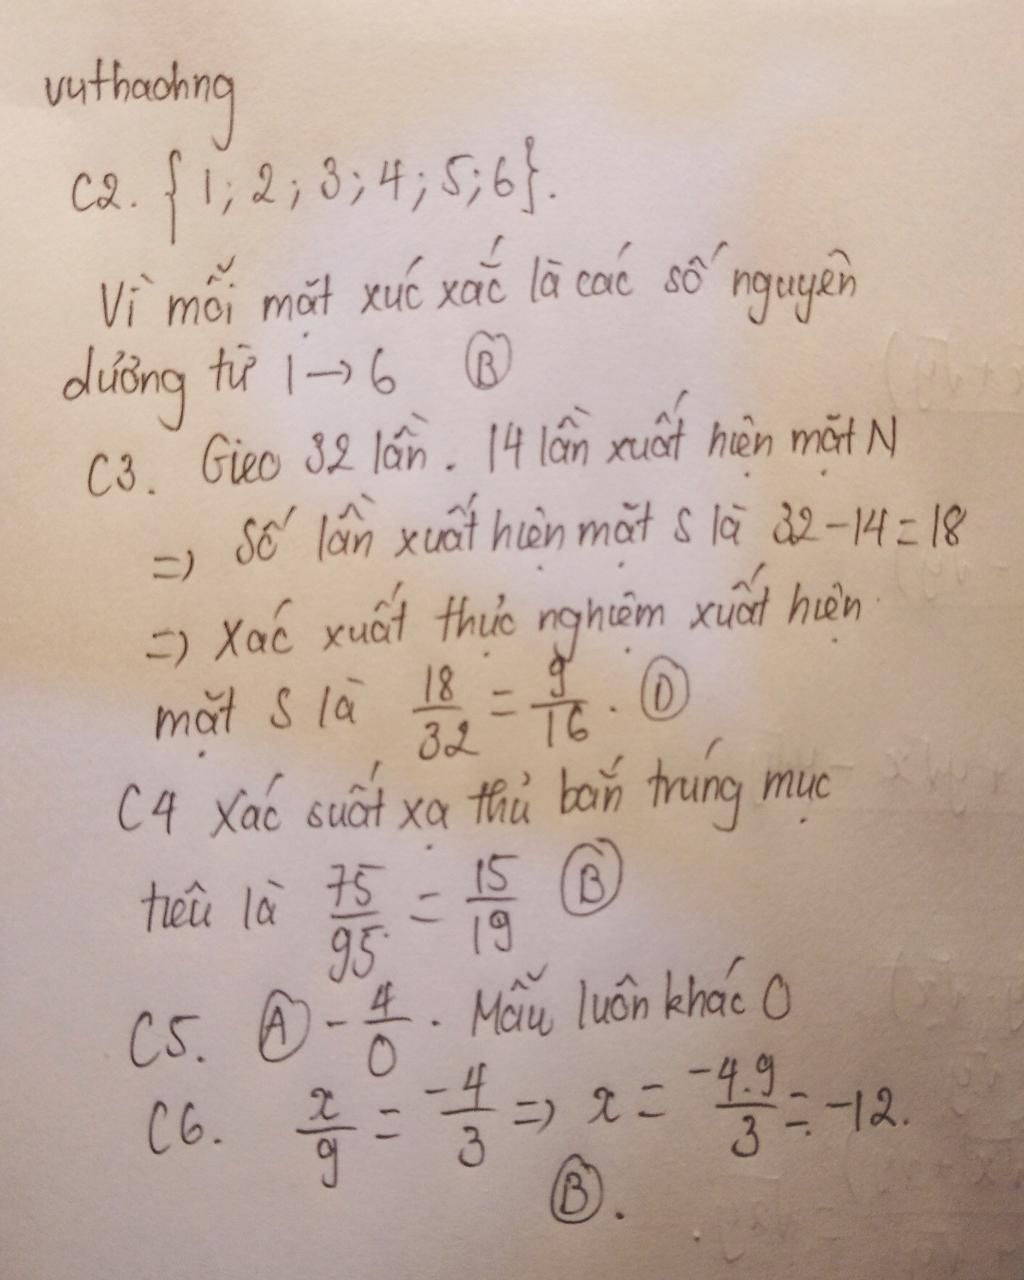 vuthaohng
C2. { 1; 2; 3; 4; 5; 6}.
Vì mỗi mặt xúc xắc là các số nguyên
dương từ 1 → 6 Ⓑ
C3. Gieo 32 lần. 14 lần xuất hiện mặt N
=> Số lần xuất hiện mặt S là 32 - 14 = 18
=> Xác xuất thực nghiệm xuất hiện
mặt S là 18/32 = 9/16. Ⓓ
C4 Xác suất xạ thủ bắn trúng mục
tiêu là 75/95 = 15/19 Ⓑ
C5. Ⓐ - 4/0. Mẫu luôn khác 0
C6. x/9 = -4/3 => x = -4.9/3 = -12.
Ⓑ.